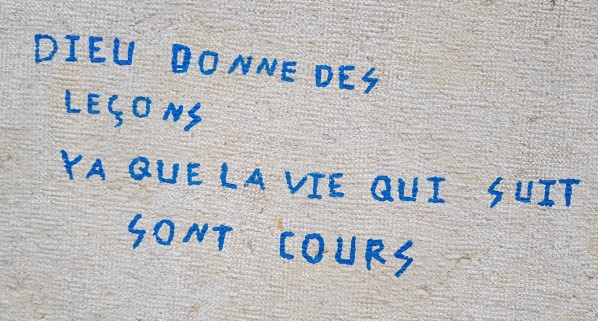 DIEU DONNE DES
LEÇONS
YA QUE LA VIE QUI SUIT
SONT COURS